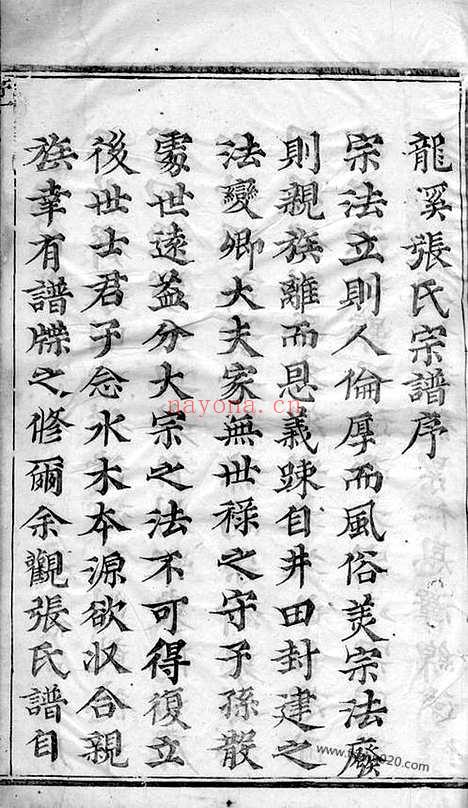 龍溪張氏宗譜序
宗法立則人倫厚而風俗美宗法廢
則親族離而恩義踈自井田封建之
法變卿大夫家無世祿之守子孫散
處世遠益分大宗之法不可得復立
後世士君子念水木本源欲收合親
族幸有譜牒之修爾余觀張氏譜自
nayona.cn